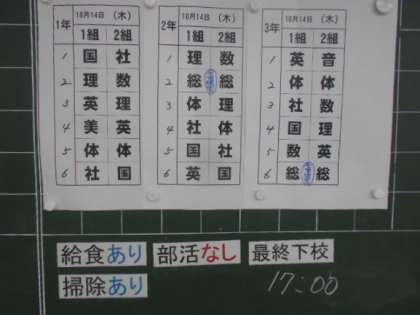 1年 10月14日 (木)
1組 2組
1 国 社
2 理 数
3 英 理
4 美 英
5 体 体
6 社 国
2年 10月14日 (木)
1組 2組
1 理 数
2 総 総
3 体 理
4 社 体
5 国 社
6 英 国
3年 10月14日 (木)
1組 2組
1 英 音
2 体 体
3 社 数
4 国 理
5 数 英
6 総 総
給食あり 部活なし 最終下校
掃除あり 17:00